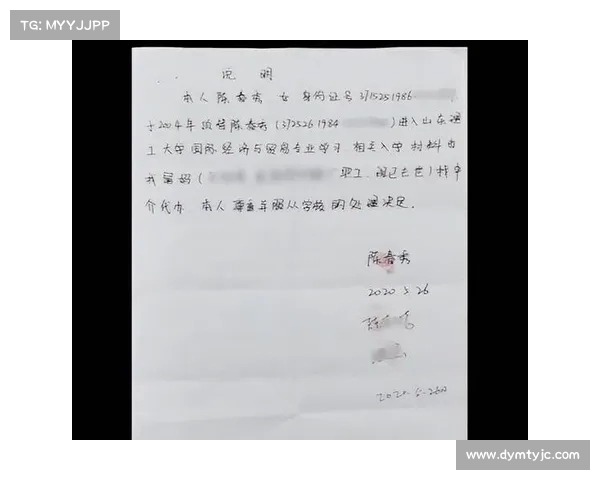 TG: MYYJJPP
说 明
本人陈春秀, 女 身份证号 3715251986
于2004年顶替陈春秀(3725261984 )进入山东理
工大学国际经济与贸易专业学习, 相关入学材料由
我舅妈( 职工, 现已去世)找中
介代办. 本人尊重并服从学校的处理决定.
陈春秀
2020.5.26
陈
2020.5.26日
www.dymtyjc.com